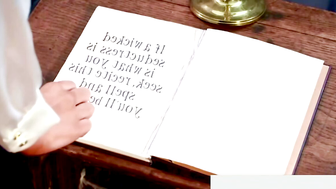 If a wicked
seductress is
is what you
seek, recite this
spell and
you'll be